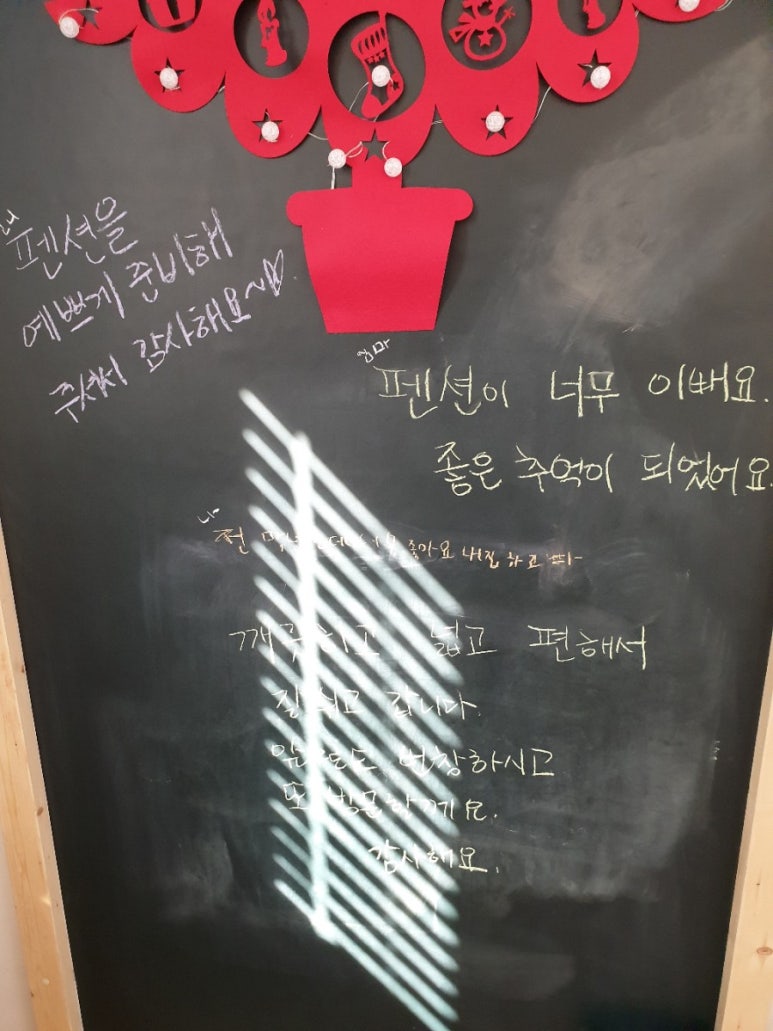 펜션을
예쁘게 준비해
주셔서 감사해요~♡
엄마
펜션이 너무 이뻐요.
좋은 추억이 되었어요.
전 좋아요 내집 하고 따
깨끗하고 넓고 편해서
잘 쉬고 갑니다.
앞으로도 번창하시고
또 방문할께요.
감사해요.